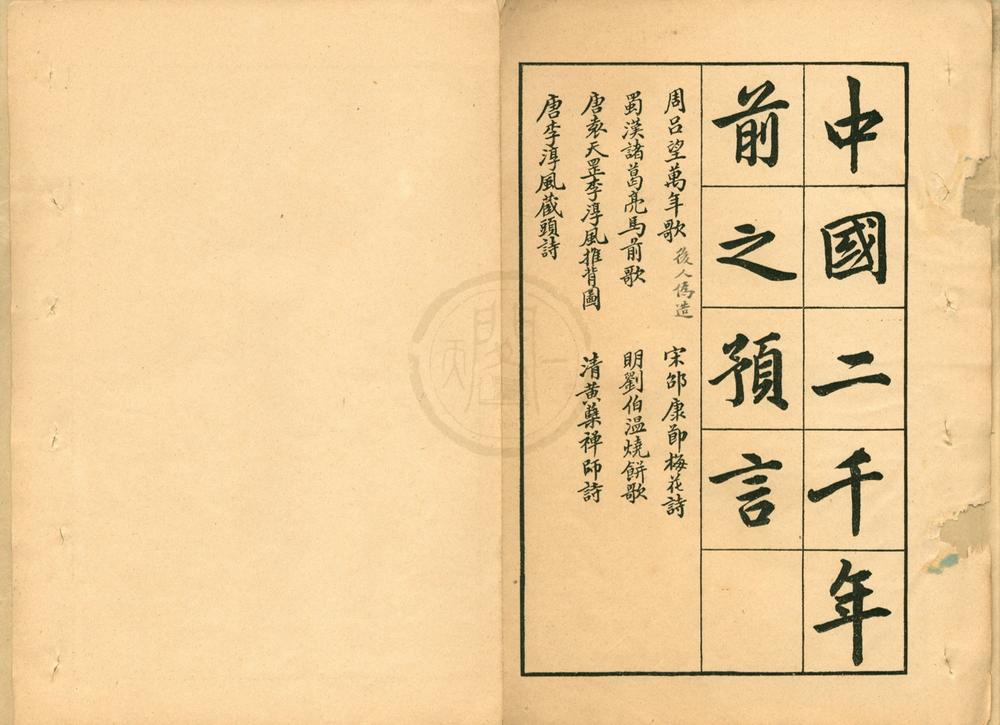 中國二千年
前之預言
周呂望萬年歌 後人僞造
宋邵康節梅花詩
蜀漢諸葛亮馬前歌
明劉伯溫燒餅歌
唐袁天罡李淳風推背圖
清黃蘗禪師詩
唐李淳風藏頭詩